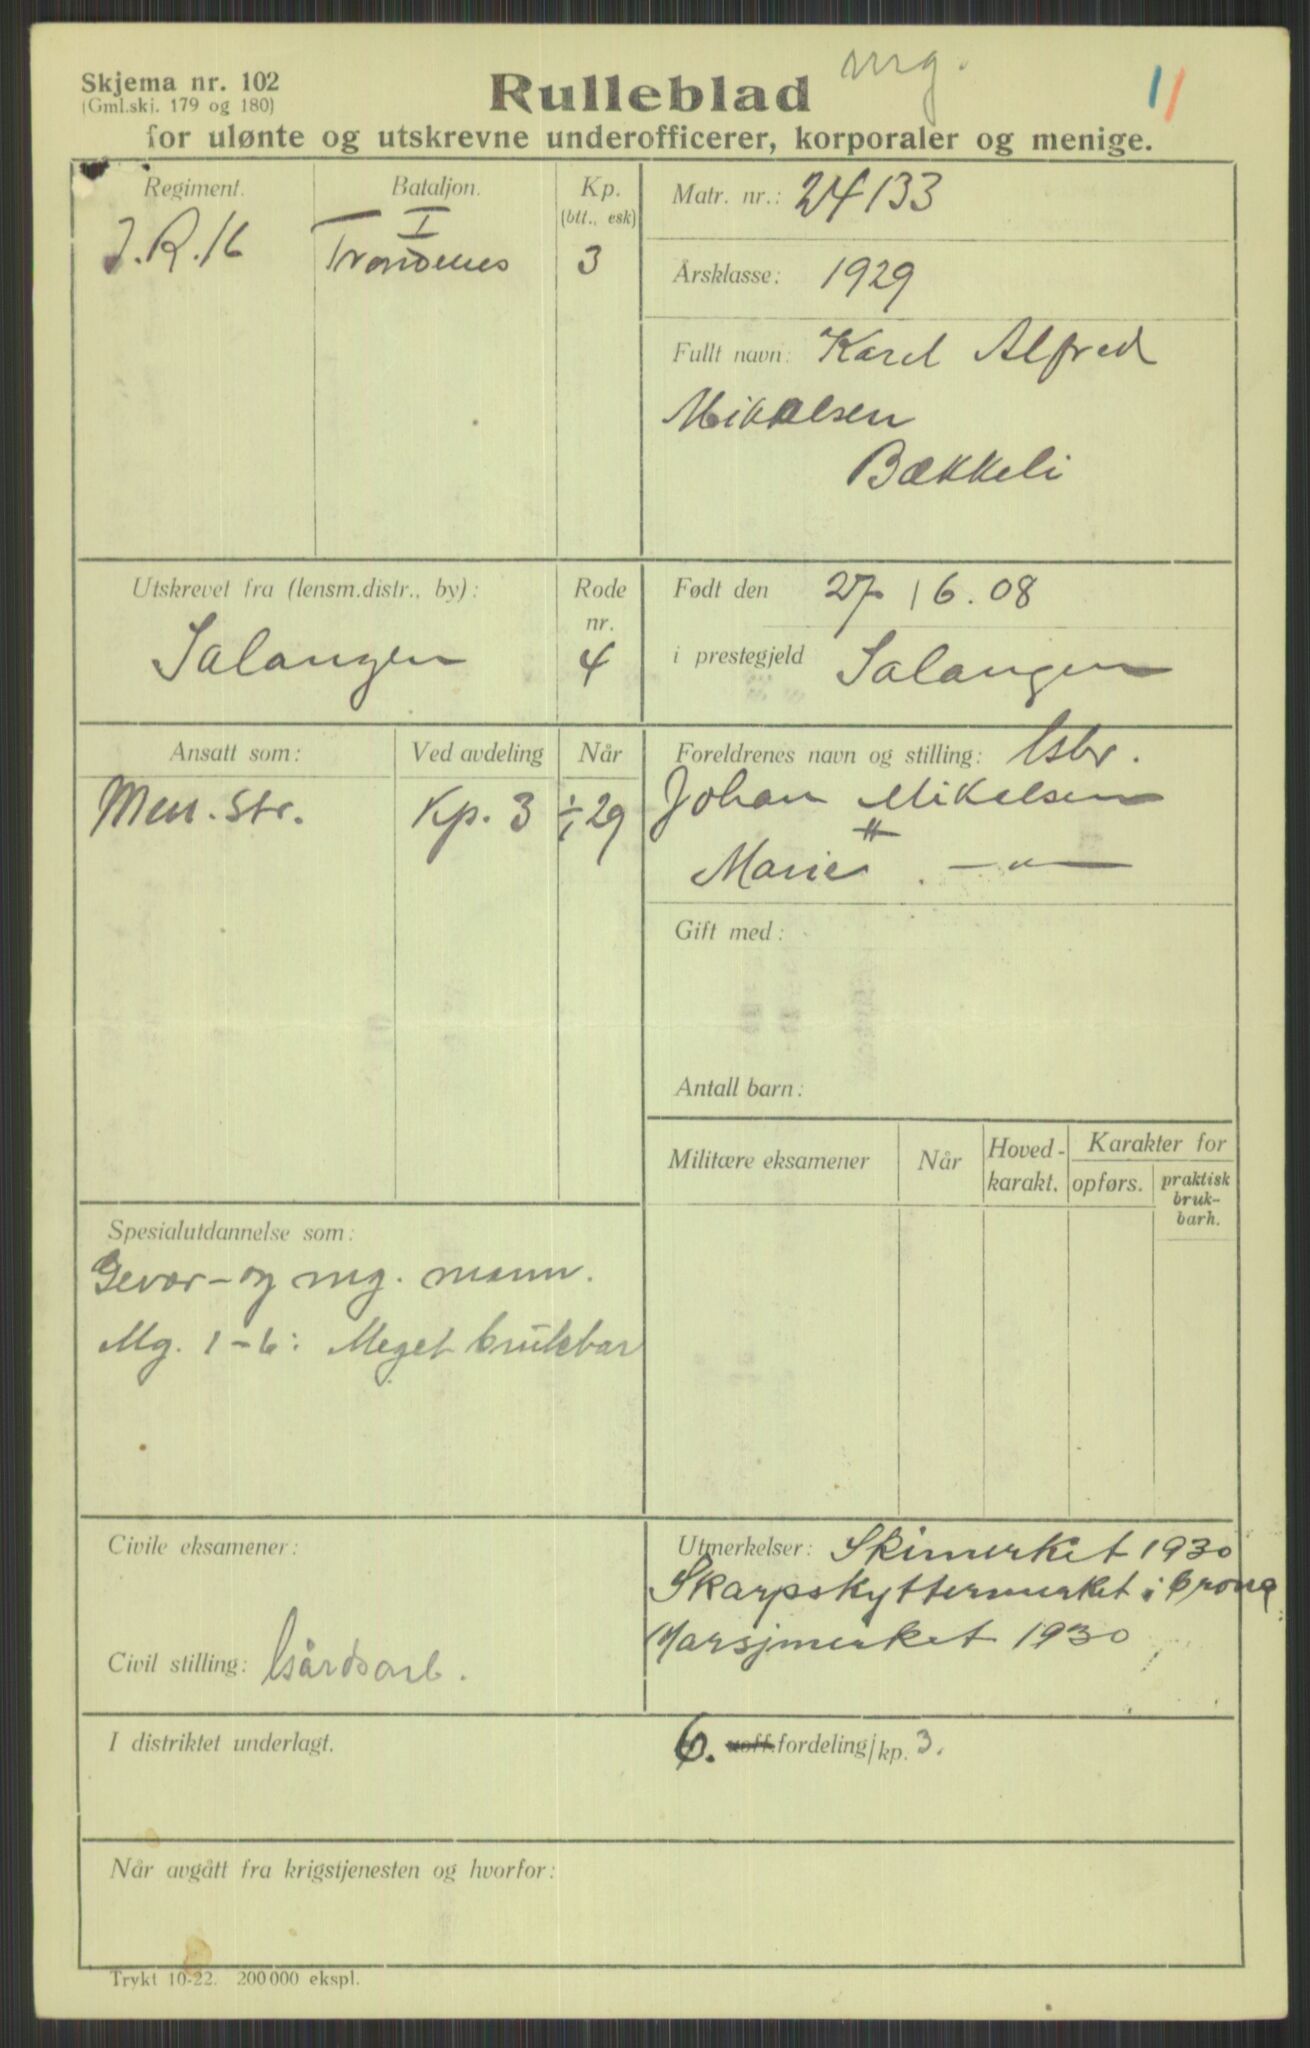 mg.
Skjema nr. 102
(Gml.skj. 179 og 180)
Rulleblad
11
for ulønte og utskrevne underofficerer, korporaler og menige.
Regiment.
Bataljon.
Kp.
(btt., esk)
J.R.16
I
Trondenes
3
Matr. nr.: 24133
Årsklasse: 1929
Fullt navn: Karel Alfred
Mikalsen
Bækkeli
Utskrevet fra (lensm.distr., by):
Salangen
Rode
nr.
4
Født den 27/6.08
i prestegjeld Salangen
Ansatt som:
Ved avdeling
Når
Men. str.
Kp. 3
1/1 29
Foreldrenes navn og stilling: Gbr.
Johan Mikalsen
Marie —"—
Gift med:
Antall barn:
Militære eksamener
Når
Hoved-
karakt.
Karakter for
opførs.
praktisk
bruk-
barh.
Spesialutdannelse som:
Gevær- og mg. mann.
Mg. 1-6: Meget brukbar
Civile eksamener:
Civil stilling: Gårdsarb.
Utmerkelser: Skimerket 1930
Skarpskyttermerket i bronce
Marsjmerket 1930
I distriktet underlagt.
6. uoff.fordeling/kp. 3.
Når avgått fra krigstjenesten og hvorfor:
Trykt 10-22. 200 000 ekspl.